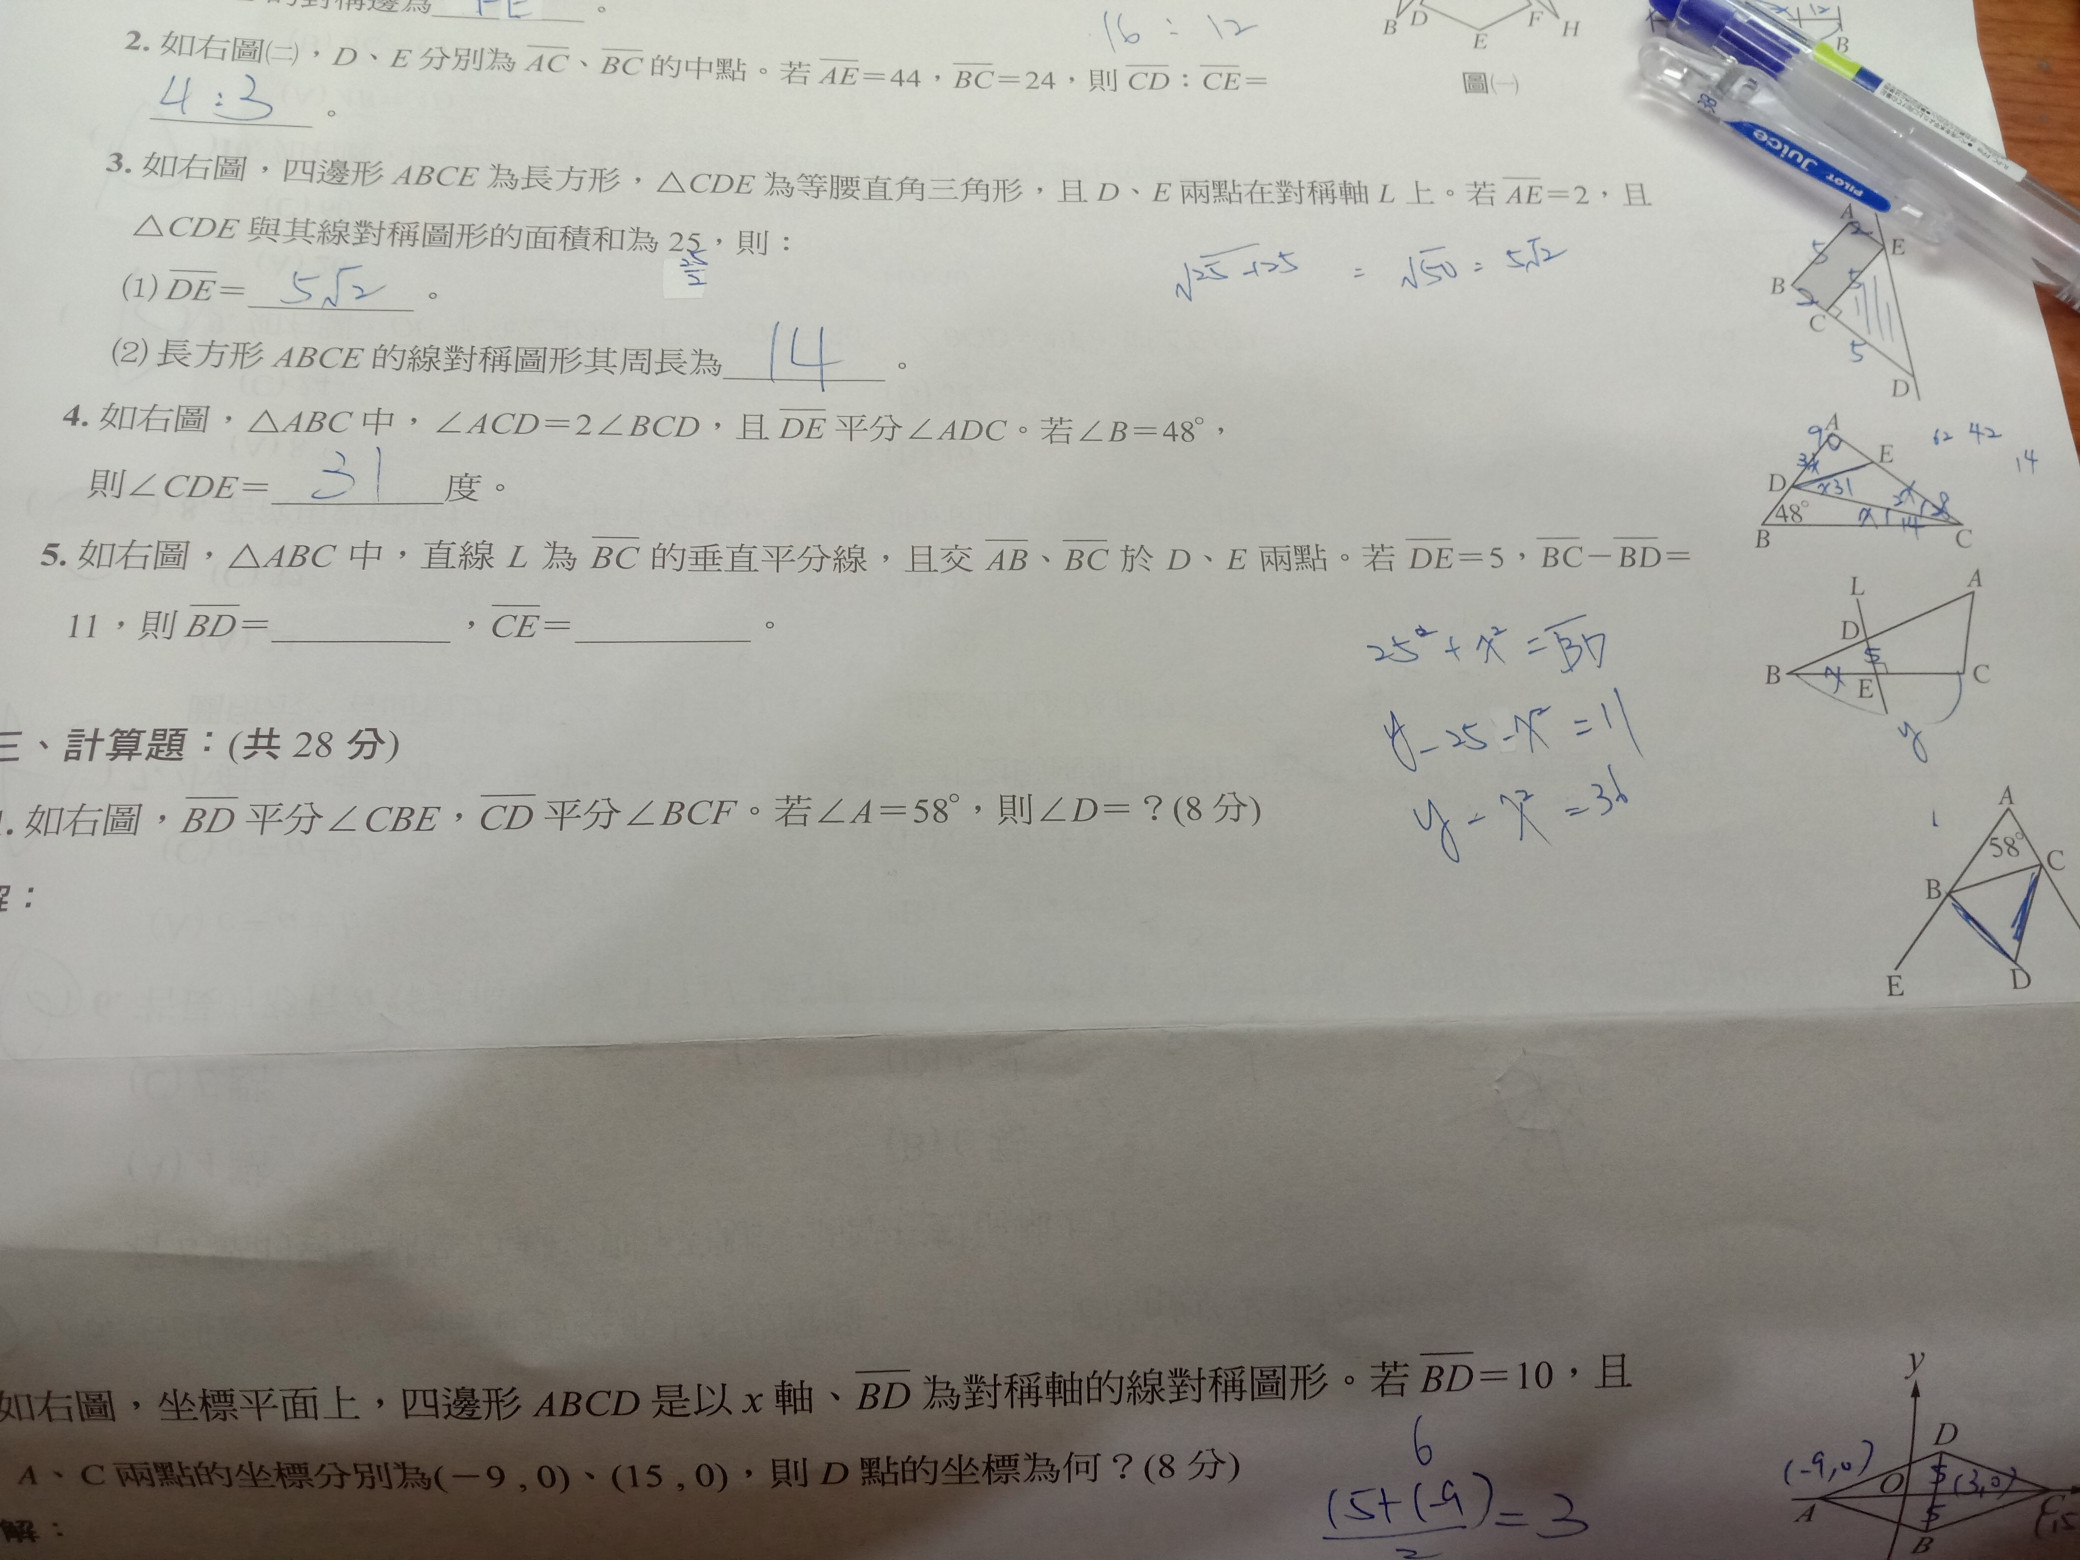 的對稱邊為 FE 。
2. 如右圖㈡，D、E 分別為 AC、BC 的中點。若 AE＝44，BC＝24，則 CD：CE＝
4:3 。
16 : 12
B D E F H
圖㈠
B
Juice
PILOT
3. 如右圖，四邊形 ABCE 為長方形，△CDE 為等腰直角三角形，且 D、E 兩點在對稱軸 L 上。若 AE＝2，且
△CDE 與其線對稱圖形的面積和為 25，則：
25/2
(1) DE＝ 5√2 。
√25+25 = √50 = 5√2
(2) 長方形 ABCE 的線對稱圖形其周長為 14 。
A 2 E
5 5
B 2 C
5
D
4. 如右圖，△ABC 中，∠ACD＝2∠BCD，且 DE 平分∠ADC。若∠B＝48°，
則∠CDE＝ 31 度。
A E
62 42
14
D x31
48°
B C
5. 如右圖，△ABC 中，直線 L 為 BC 的垂直平分線，且交 AB、BC 於 D、E 兩點。若 DE＝5，BC－BD＝
11，則 BD＝ ，CE＝ 。
25²+x²=BD
y-25-x²=11
y-x²=36
L A
D
5
B x E C
y
三、計算題：(共 28 分)
1. 如右圖，BD 平分∠CBE，CD 平分∠BCF。若∠A＝58°，則∠D＝？(8 分)
解：
A
58°
C
B
E D
如右圖，坐標平面上，四邊形 ABCD 是以 x 軸、BD 為對稱軸的線對稱圖形。若 BD＝10，且
A、C 兩點的坐標分別為(－9 , 0)、(15 , 0)，則 D 點的坐標為何？(8 分)
解：
6
15+(-9)/2=3
y
D
(-9,0) O 5 (3,0)
A 5 C
B